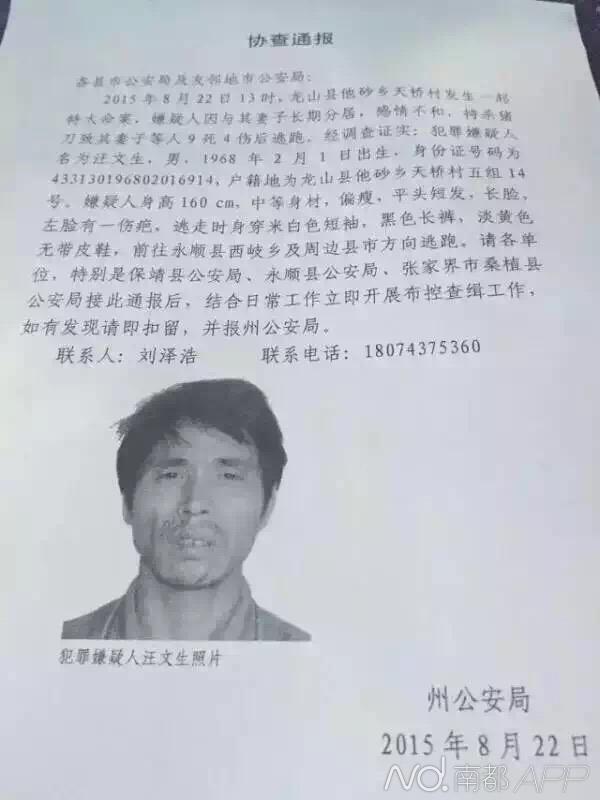 协查通报
各县市公安局及友邻地市公安局：
2015年8月22日13时，龙山县他砂乡天桥村发生一起
特大命案，嫌疑人因与其妻子长期分居，感情不和，持杀猪
刀致其妻子等人9死4伤后逃跑。经调查证实：犯罪嫌疑人
名为汪文生，男，1968年2月1日出生，身份证号码为
433130196802016914，户籍地为龙山县他砂乡天桥村五组14
号。嫌疑人身高160cm，中等身材，偏瘦，平头短发，长脸，
左脸有一伤疤，逃走时身穿米白色短袖，黑色长裤，淡黄色
无带皮鞋，前往永顺县西岐乡及周边县市方向逃跑。请各单
位，特别是保靖县公安局、永顺县公安局、张家界市桑植县
公安局接此通报后，结合日常工作立即开展布控查缉工作，
如有发现请即扣留，并报州公安局。
联系人：刘泽浩 联系电话：18074375360
犯罪嫌疑人汪文生照片
州公安局
2015年8月22日
N.D.南都APP